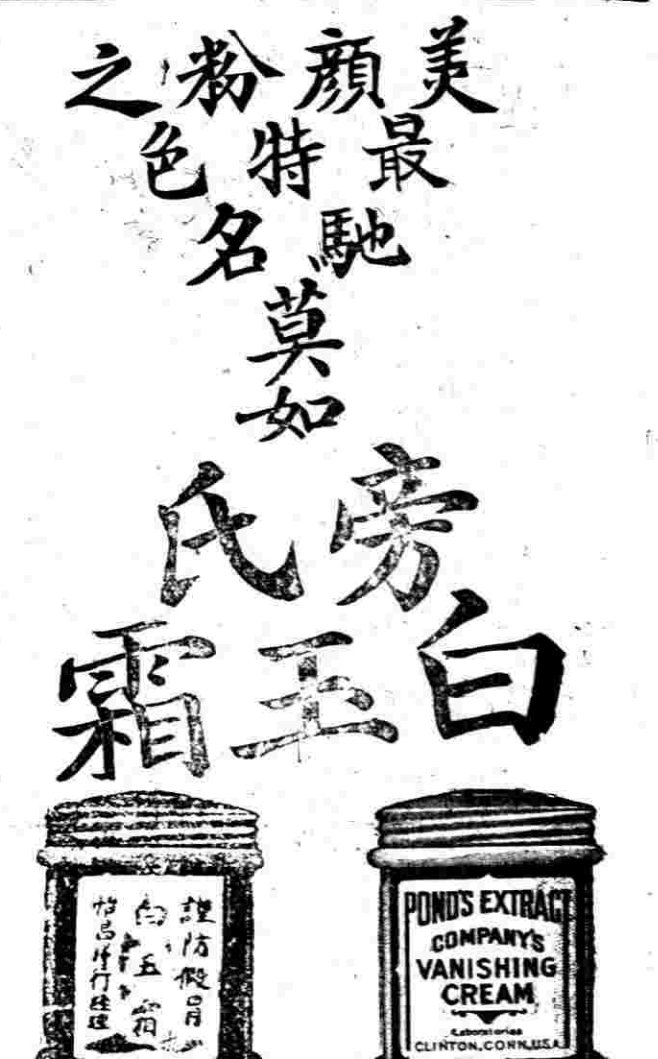 美顔粉之
最特色
馳名
莫
如
旁氏
白玉霜
謹防假冐
白玉霜
怡昌洋行經理
POND'S EXTRACT
COMPANY'S
VANISHING
CREAM
Laboratories
CLINTON, CONN, U.S.A.